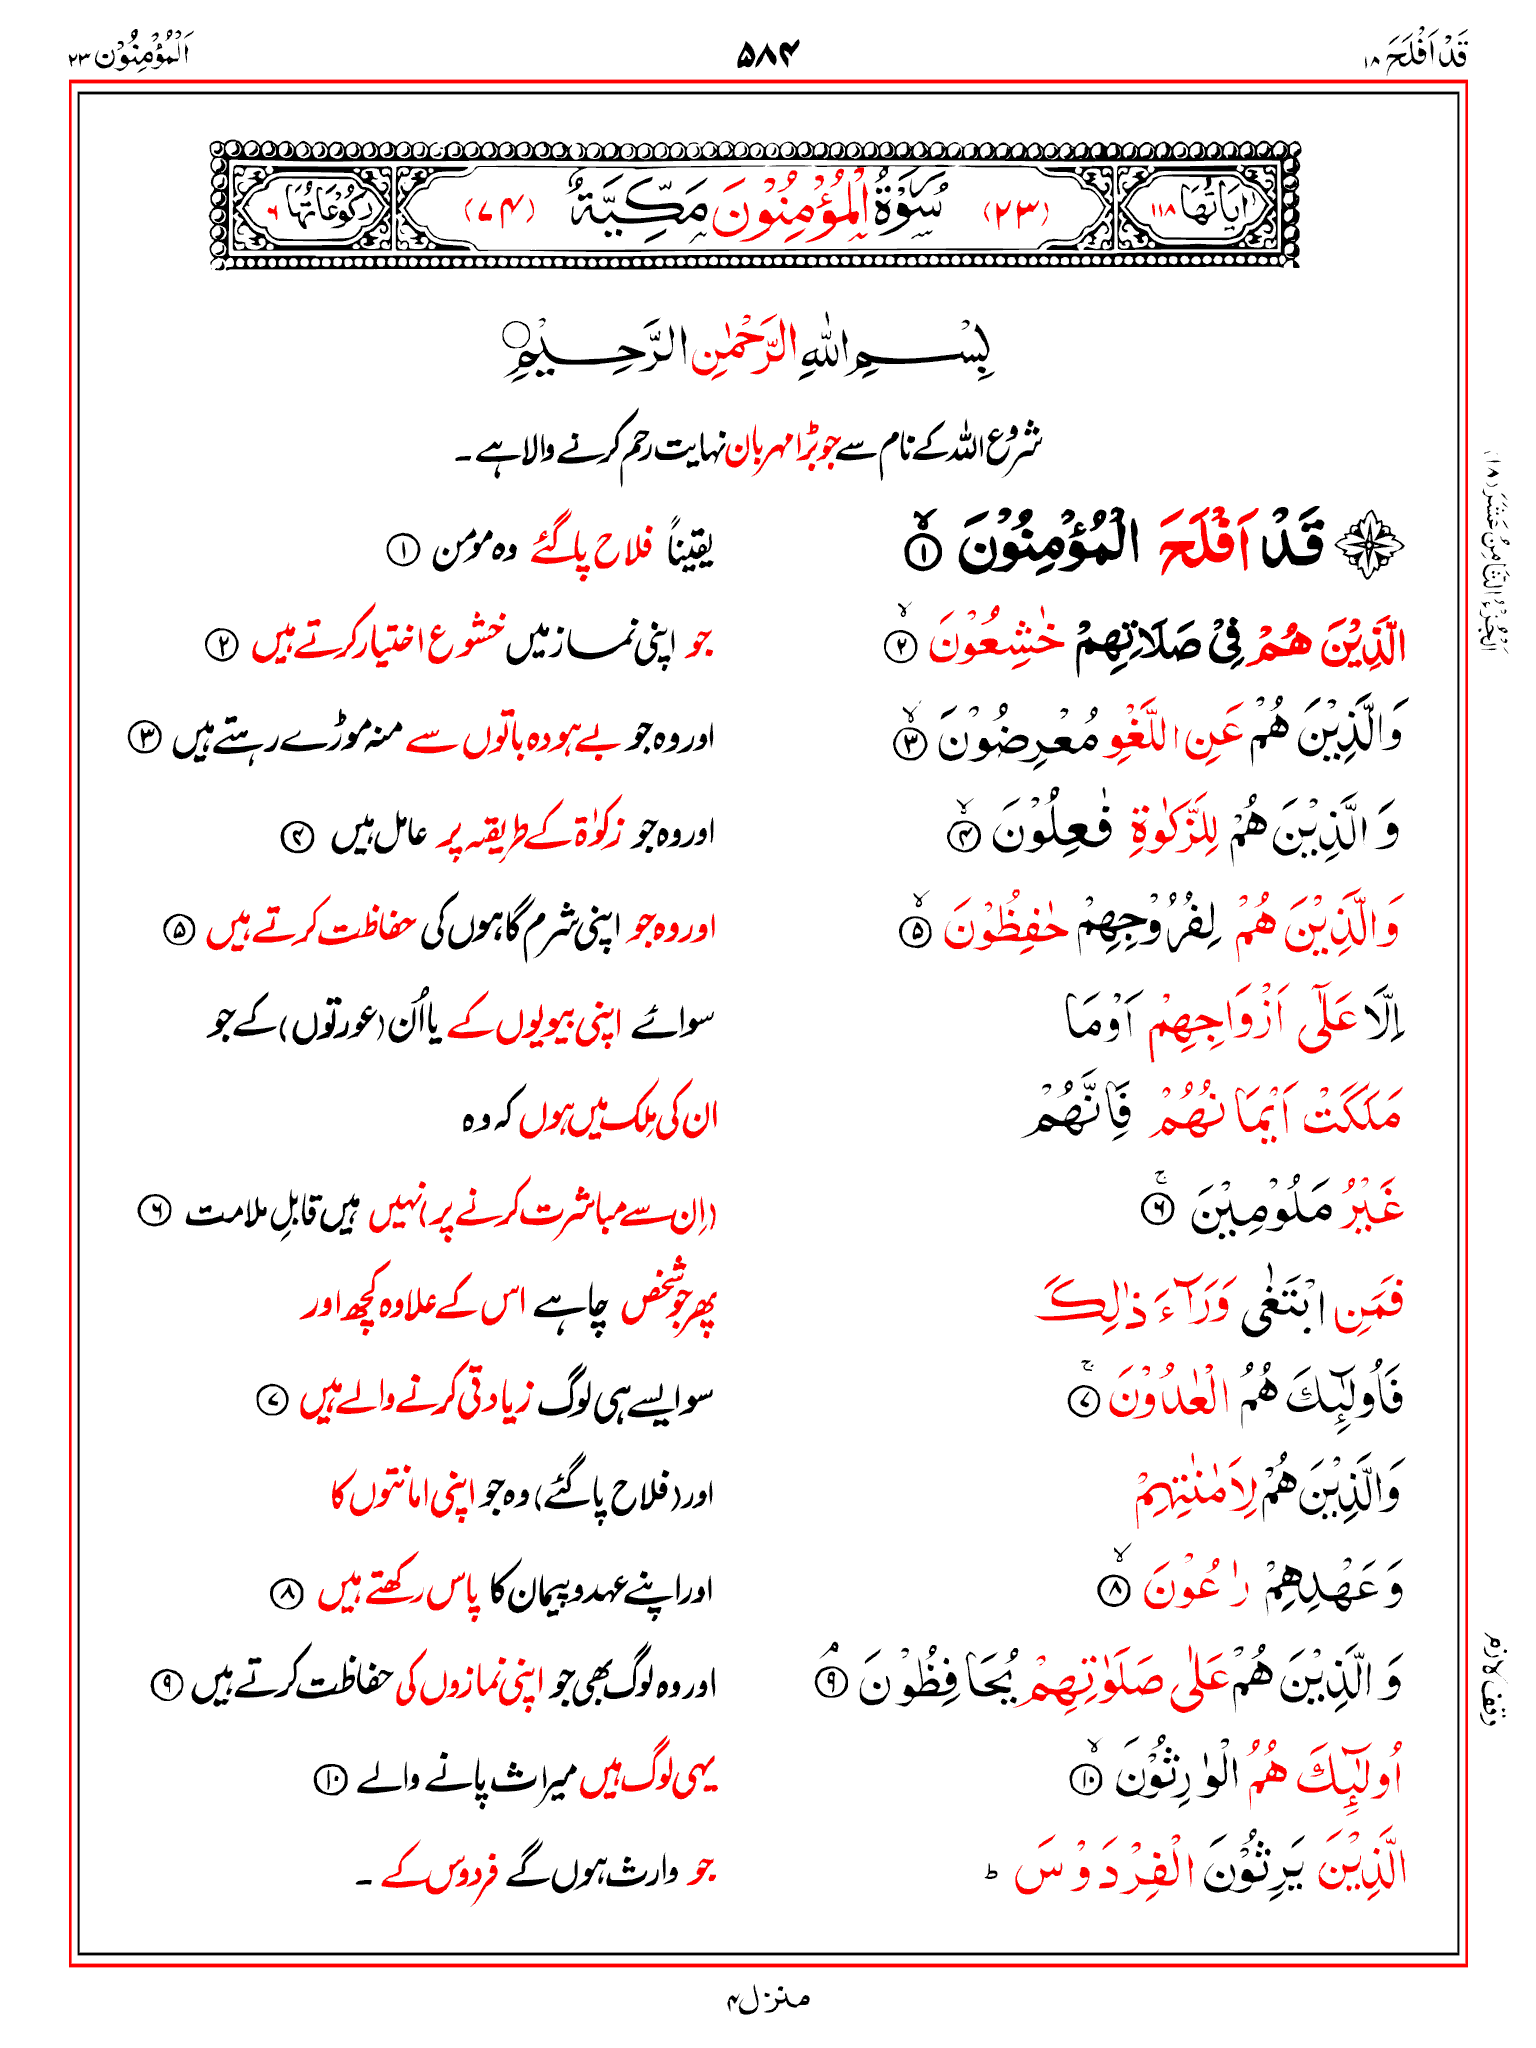 قَدْ اَفْلَحَ ۱۸
۵۸۴
اَلْمُؤْمِنُوْن ۲۳
اٰیَاتُهَا ۱۱۸
(۲۳) سُوْرَةُ الْمُؤْمِنُوْنَ مَكِّیَّةٌ (۷۴)
رُكُوْعَاتُهَا ۶
بِسْمِ اللهِ الرَّحْمٰنِ الرَّحِیْمِ
شروع اللہ کے نام سے جو بڑا مہربان نہایت رحم کرنے والا ہے ۔
قَدْ اَفْلَحَ الْمُؤْمِنُوْنَ ۙ﴿۱﴾ یقیناً فلاح پا گئے وہ مومن ①
الَّذِیْنَ هُمْ فِیْ صَلَاتِهِمْ خٰشِعُوْنَ ۙ﴿۲﴾ جو اپنی نماز میں خشوع اختیار کرتے ہیں ②
وَالَّذِیْنَ هُمْ عَنِ اللَّغْوِ مُعْرِضُوْنَ ۙ﴿۳﴾ اور وہ جو بے ہودہ باتوں سے منہ موڑے رہتے ہیں ③
وَ الَّذِیْنَ هُمْ لِلزَّكٰوةِ فٰعِلُوْنَ ۙ﴿۴﴾ اور وہ جو زکوٰۃ کے طریقہ پر عامل ہیں ④
وَالَّذِیْنَ هُمْ لِفُرُوْجِهِمْ حٰفِظُوْنَ ۙ﴿۵﴾ اور وہ جو اپنی شرم گاہوں کی حفاظت کرتے ہیں ⑤
اِلَّا عَلٰۤی اَزْوَاجِهِمْ اَوْمَا سوائے اپنی بیویوں کے یا اُن (عورتوں) کے جو
مَلَكَتْ اَیْمَانُهُمْ فَاِنَّهُمْ ان کی مِلک میں ہوں کہ وہ
غَیْرُ مَلُوْمِیْنَ ۚ﴿۶﴾ (اِن سے مباشرت کرنے پر) نہیں ہیں قابلِ ملامت ⑥
فَمَنِ ابْتَغٰی وَرَآءَ ذٰلِكَ پھر جو شخص چاہے اس کے علاوہ کچھ اور
فَاُولٰٓئِكَ هُمُ الْعٰدُوْنَ ۚ﴿۷﴾ سو ایسے ہی لوگ زیادتی کرنے والے ہیں ⑦
وَالَّذِیْنَ هُمْ لِاَمٰنٰتِهِمْ اور (فلاح پا گئے) وہ جو اپنی امانتوں کا
وَعَهْدِهِمْ رٰعُوْنَ ۙ﴿۸﴾ اور اپنے عہد و پیمان کا پاس رکھتے ہیں ⑧
وَ الَّذِیْنَ هُمْ عَلٰی صَلَوٰتِهِمْ یُحَافِظُوْنَ ۘ﴿۹﴾ اور وہ لوگ بھی جو اپنی نمازوں کی حفاظت کرتے ہیں ⑨
اُولٰٓئِكَ هُمُ الْوٰرِثُوْنَ ۙ﴿۱۰﴾ یہی لوگ ہیں میراث پانے والے ⑩
الَّذِیْنَ یَرِثُوْنَ الْفِرْدَوْسَ ؕ جو وارث ہوں گے فردوس کے ۔
اَلْجُزْءُ الثَّامِنُ عَشَرَ (۱۸)
وقف لازم
منزل ۴